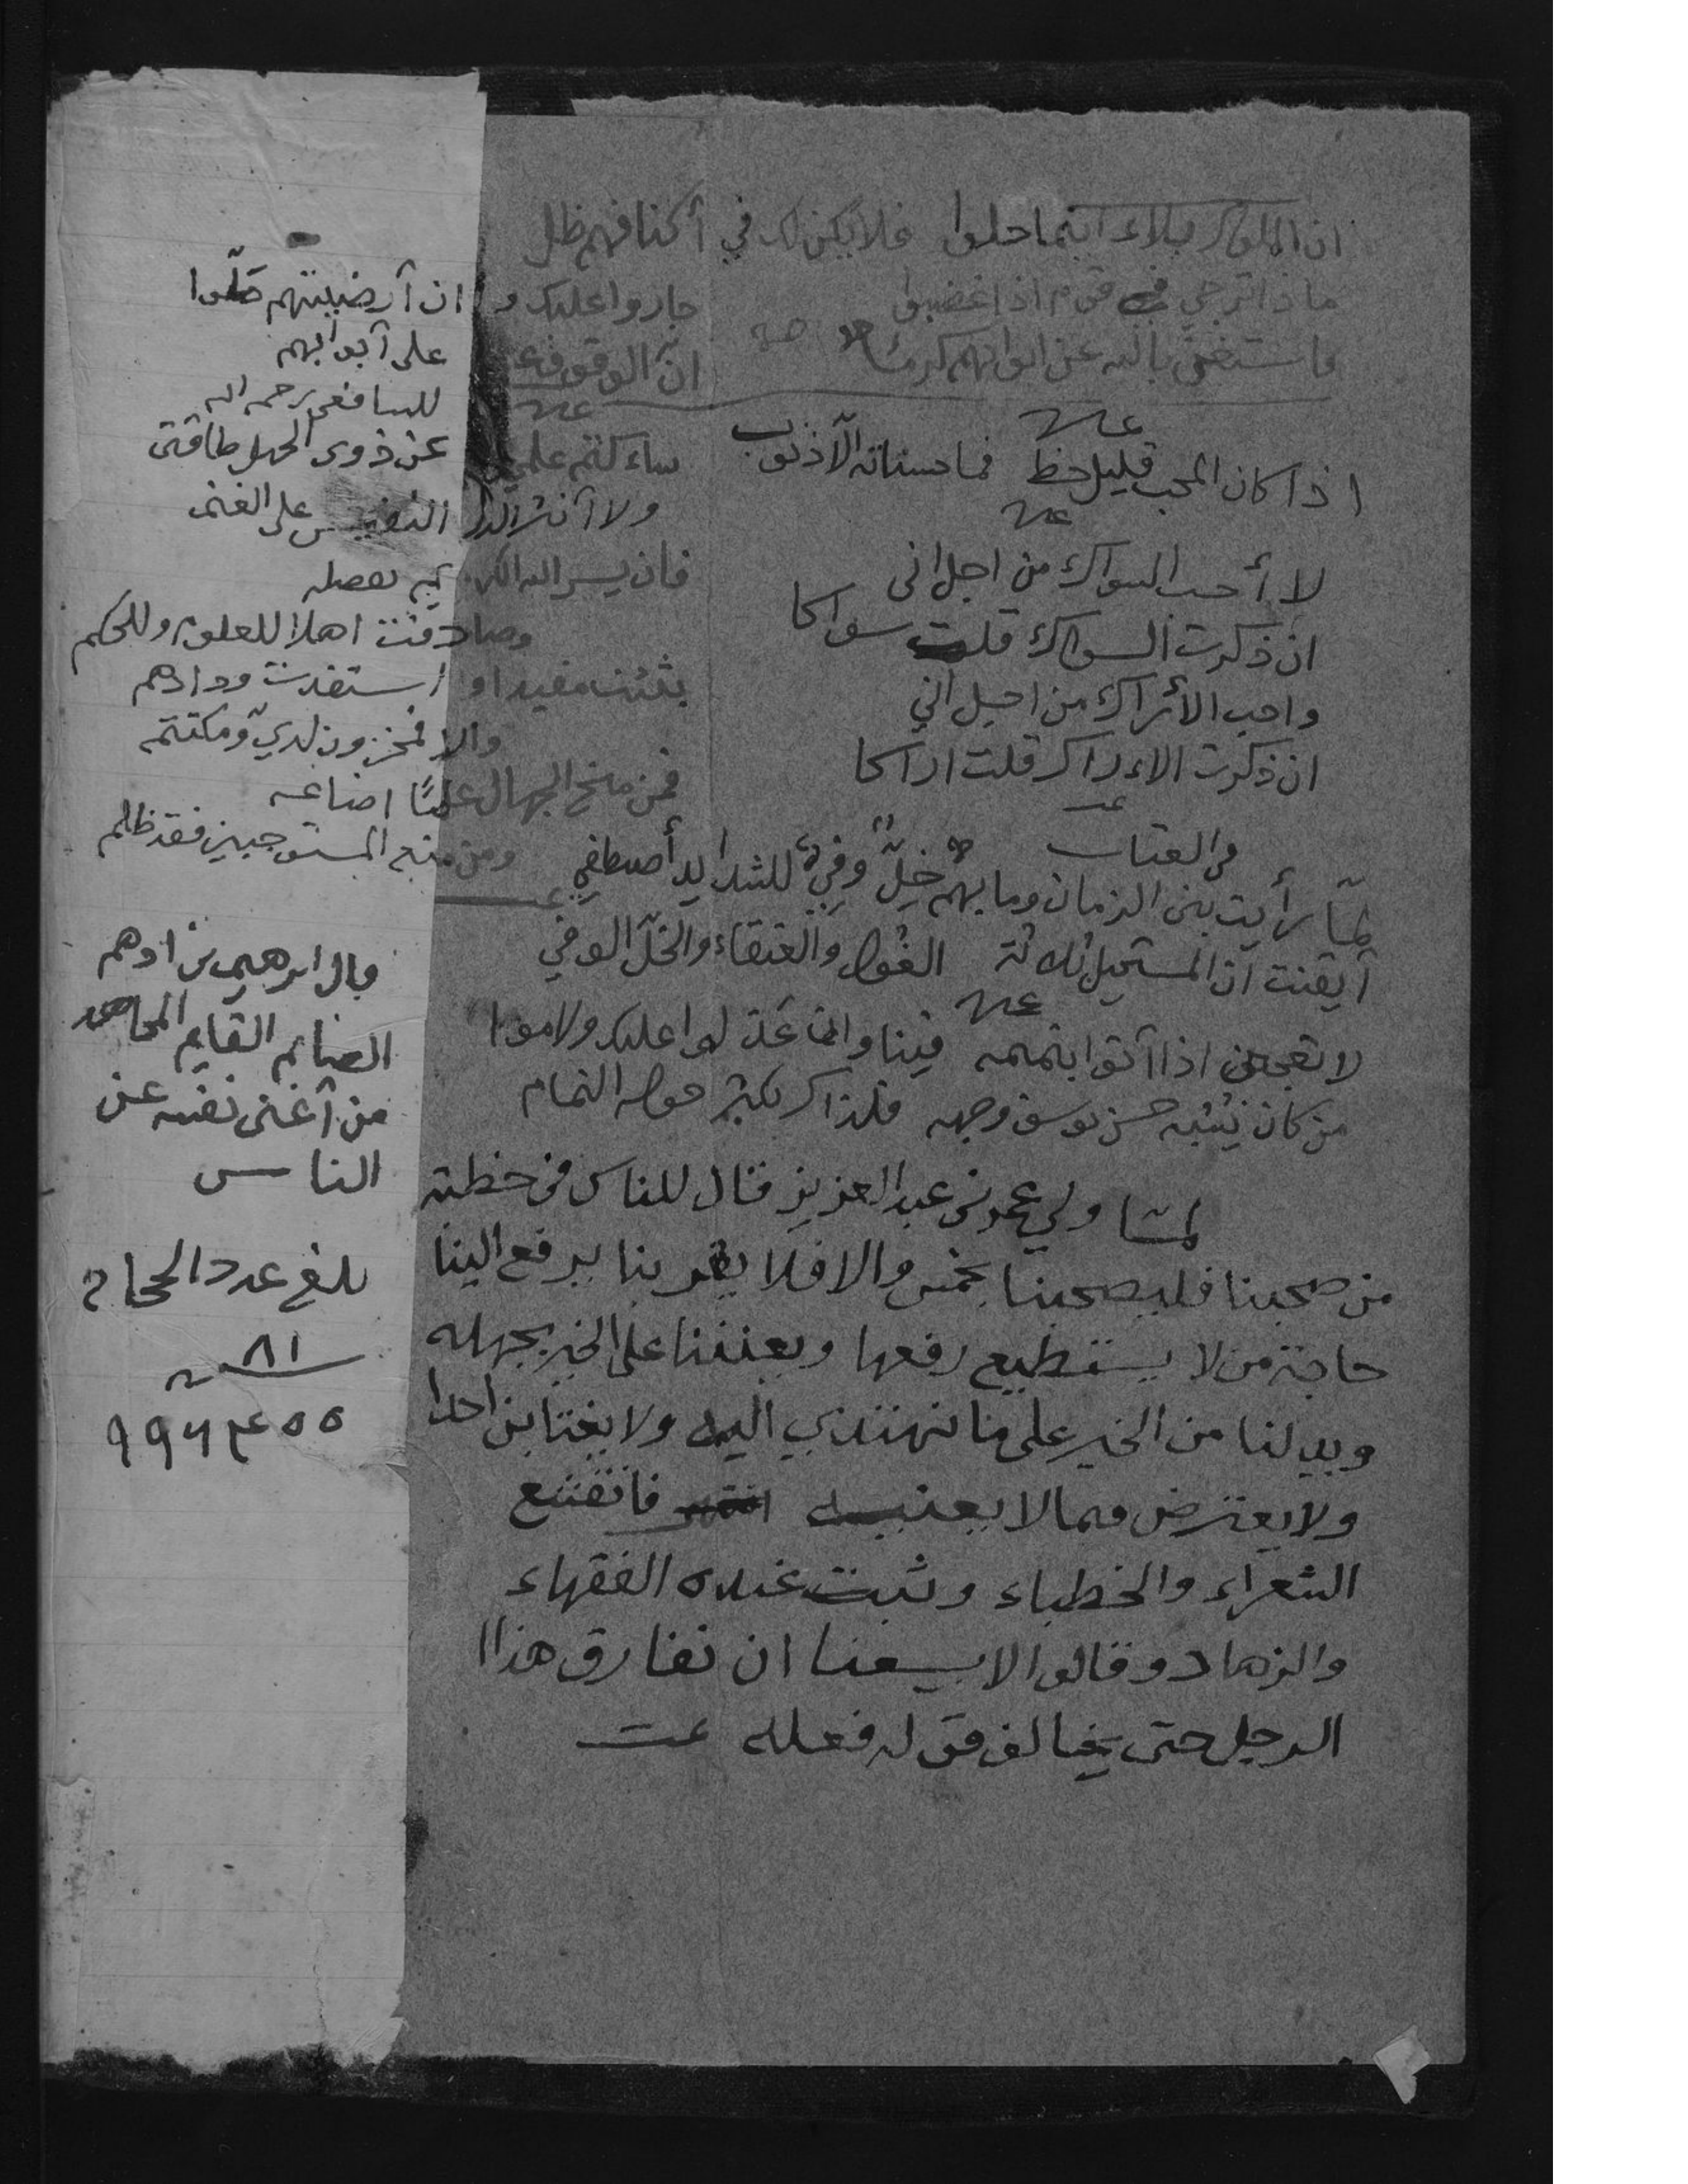 ان الملوك بلاء اينما حلوا فلا يكن لك في أكنافهم ظل
ماذا ترجي في قوم اذا غضبوا جاروا عليك و ان أرضيتهم ملّوا
فاستغني بالله عن ابوابهم كرما انّ الوقوف على أبوابهم
للشافعي رحمه الله
اذا كان المحب قليل حظ فما حسناته الّا ذنوب
ساءكتم علمي عن ذوي الجهل طاقتي
ولا أنثر الدر النفيس على الغنم
فان يسر الله الكريم بفضله
وصادفت اهلا للعلوم وللحكم
بثثت مفيدا و استفدت ودادهم
والا فمخزون لديّ ومكتتم
فمن منح الجهال علمًا اضاعه
ومن منع المستوجبين فقد ظلم
لا أحب السواك من اجل اني
ان ذكرت السواك قلت سواكا
واحب الأراك من اجل اني
ان ذكرت الاءراك قلت اراكا
في العتاب
لمّا رأيت بني الزمان وما بهم خِلّ وفيّ للشدايد أصطفي
أيقنت أن المستحيل ثلاثة الغول والعنقاء والخلّ الوفي
لا تعجبن اذا أتوا بنميمه فينا وان عذلوا عليك ولاموا
من كان يُشبه حسن يوسف وجهه فلذاك يكثر حوله النمام
لمّا ولي عمر بن عبد العزيز فقال للناس في خطبته
من صحبنا فليصحبنا بخمس والا فلا يقربنا يرفع الينا
حاجة من لا يستطيع رفعها و يعيننا على الخير بجهله
ويدلنا من الخير على ما نهتدي اليه ولا يغتابن احدا
ولا يعترض فيما لا يعنيه فانقشع
الشعراء والخطباء وثبت عنده الفقهاء
والزهاد و قالوا لا يسعنا ان نفارق هذا
الرجل حتى يخالف قوله فعله
قال ابرهيم بن ادهم
الصايم القايم المجاهد
من أغنى نفسه عن
الناس
بلغ عدد الحجاج
٨١